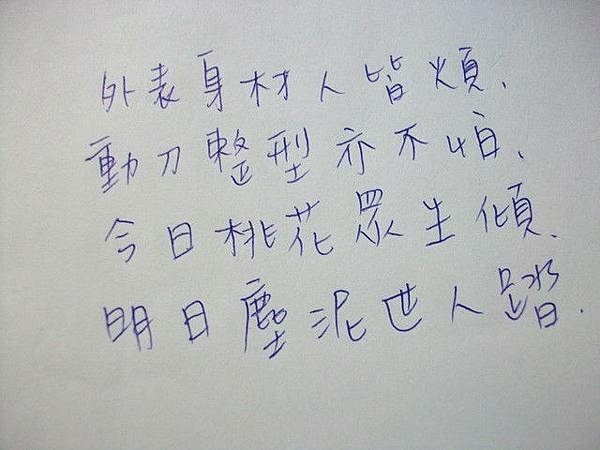 外表身材人皆煩、
動刀整型亦不怕、
今日桃花眾生傾、
明日塵泥世人踏.